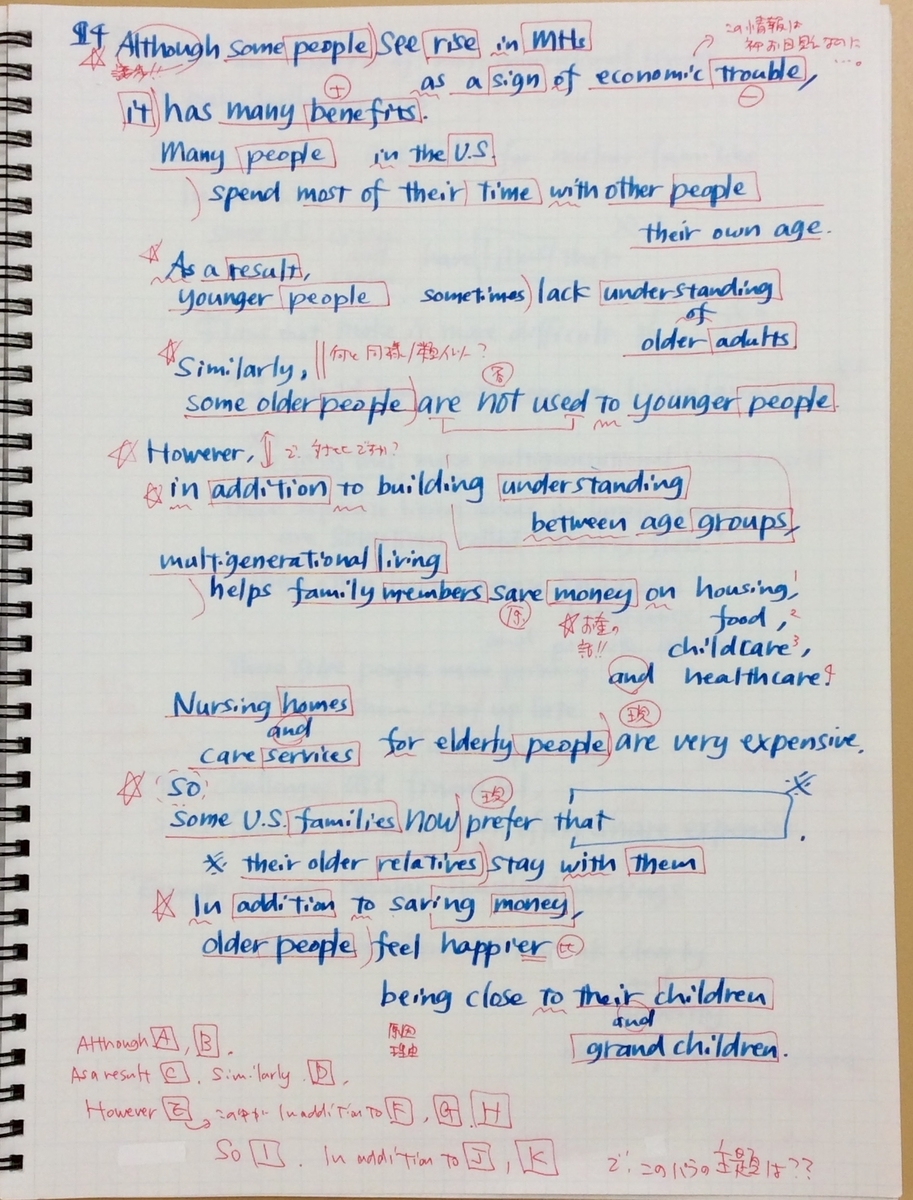 §4
Although some people see rise in MHs
as a sign of economic trouble,
この情報は
⊕
⊖
it has many benefits.
Many people in the U.S.
spend most of their time with other people
their own age.
☆ As a result,
younger people sometimes lack understanding
of
older adults
☆ Similarly, 何と同様/類似?
否
some older people are not used to younger people.
☆ However,
☆ in addition to building understanding
between age groups,
multigenerational living
helps family members save money on housing,1
food,2
childcare3,
and healthcare.4
原
☆お金の
Nursing homes
and
care services for elderly people are very expensive.
現
☆ So
some U.S. families now prefer that ※.
現
※ their older relatives stay with them
☆ In addition to saving money,
older people feel happier 比
being close to their children
and
grand children.
原因
理由
Although A, B.
As a result C. Similarly. D.
However E この中が In addition to F, G H
So I. In addition to J, K
で、このパラの主題は??